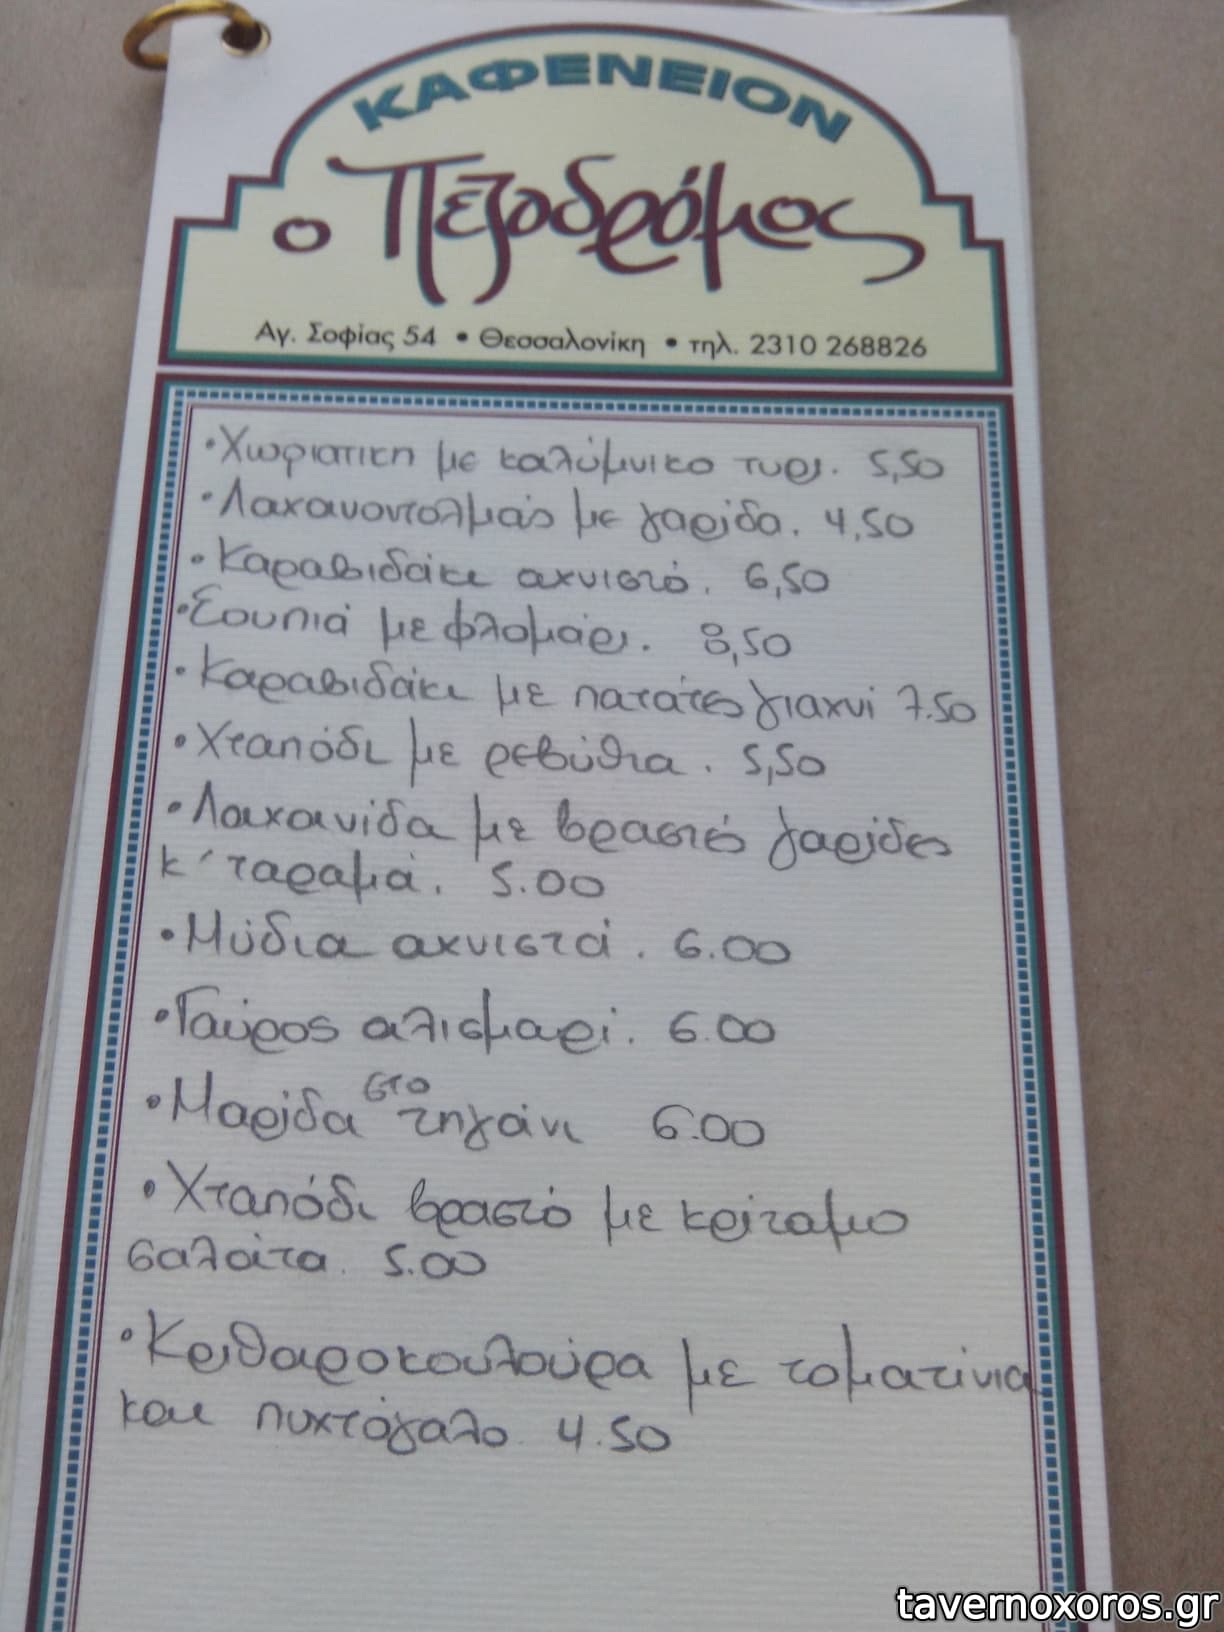 ΚΑΦΕΝΕΙΟΝ
ο Πεζοδρόμος
Αγ. Σοφίας 54 • Θεσσαλονίκη • τηλ. 2310 268826
•Χωριατικη με καλύμνικο τυρι. 5,50
•Λαχανοντολμάς με γαρίδα. 4,50
•Καραβιδάκι αχνιστό. 6,50
•Σουπιά με φλομάρι. 8,50
•Καραβιδάκι με πατάτες γιαχνί 7.50
•Χταπόδι με ρεβύθια. 5,50
•Λαχανίδα με βραστές γαρίδες
κ' ταραμά. 5.00
•Μύδια αχνιστά. 6.00
•Γαύρος αλισμαρί. 6.00
•Μαρίδα στο τηγάνι 6.00
•Χταπόδι βραστό με κρίταμο
σαλάτα. 5.00
•Κριθαροκουλούρα με τοματίνια
και πυχτόγαλο. 4.50
tavernoxoros.gr